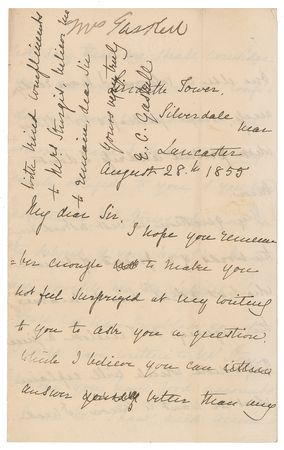 Mrs Gaskell
with kind compliments
to Mrs Sturgis, believe me
to remain, dear Sir
Yours very truly
E. C. Gaskell
Tower,
Silverdale
near
Lancaster
August 28.th 1855
My dear Sir,
I hope you remem
=ber enough to make you
not feel surprized at my writing
to you to ask you a question
which I believe you can either
answer better than any